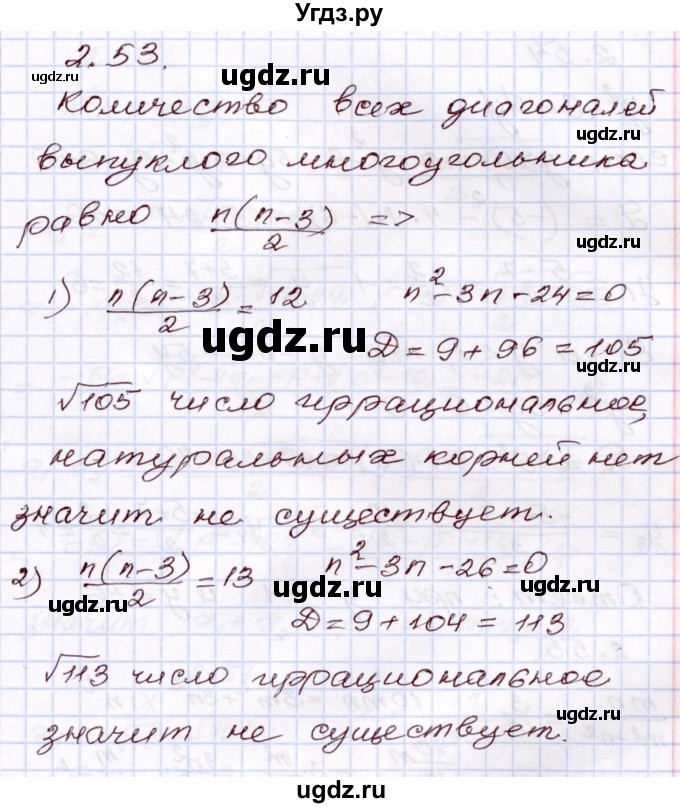 Угдз.ру
2.53.
ugdz.ru
ugdz.ru
Количество всех диагоналей
ugdz.ru
выпуклого многоугольника
ugdz.ru
равно n(n-3)/2 =>
ugdz.ru
1) n(n-3)/2 = 12 n²-3n-24=0
ugdz.ru
Д=9+96=105
√105 число иррациональное,
натуральных корней нет
значит не существует.
2) n(n-3)/2 = 13 n²-3n-26=0
ugdz.ru
ugdz.ru
ugdz.ru
Д=9+104=113
√113 число иррациональное
ugdz.ru
значит не существует.
ugdz.ru
ugdz.ru
ugdz.ru